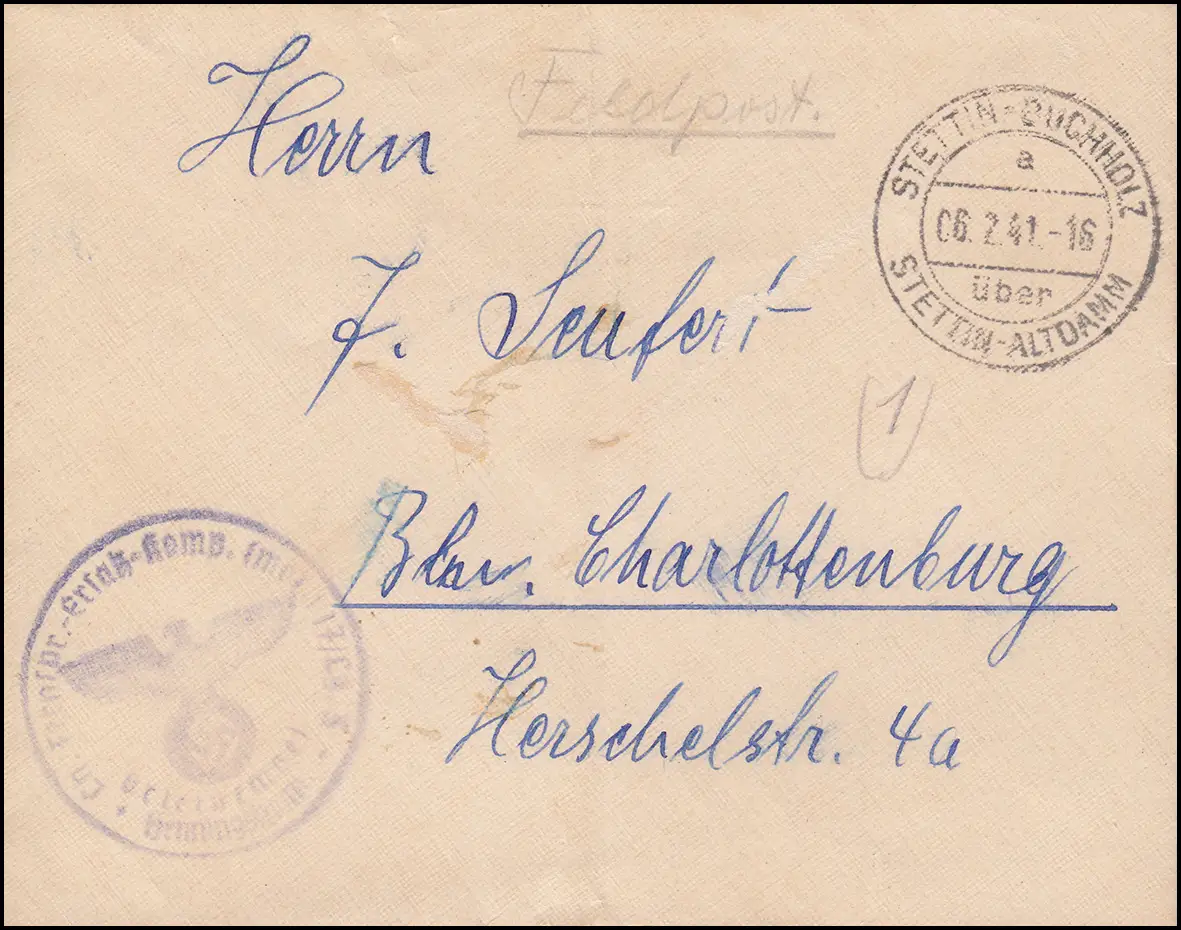 Feldpost.
Herrn
STETTIN-BUCHHOLZ
a
06.2.41.-16
über
STETTIN-ALTDAMM
F. Seufert
1
Bln. Charlottenburg
Herschelstr. 4a
Ersatz-Komp.